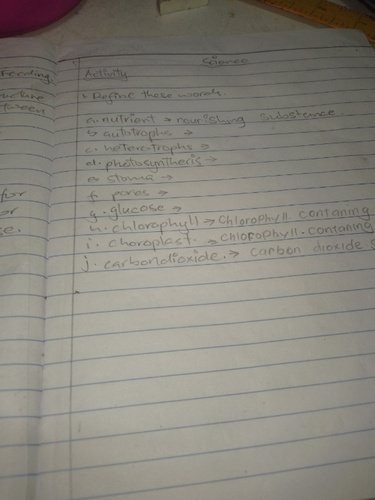 Feeding
ructure
tween
for
or
se.
Science
Activity
1. Define these words.
a. nutrient → nourishing substance
b autotrophs →
c. heterotrophs →
d. photosynthesis →
e stoma →
f pores →
g. glucose →
h. chlorophyll → Chlorophyll containing
i. choroplast. → Chlorophyll. containing
j. carbondioxide. → carbon dioxide